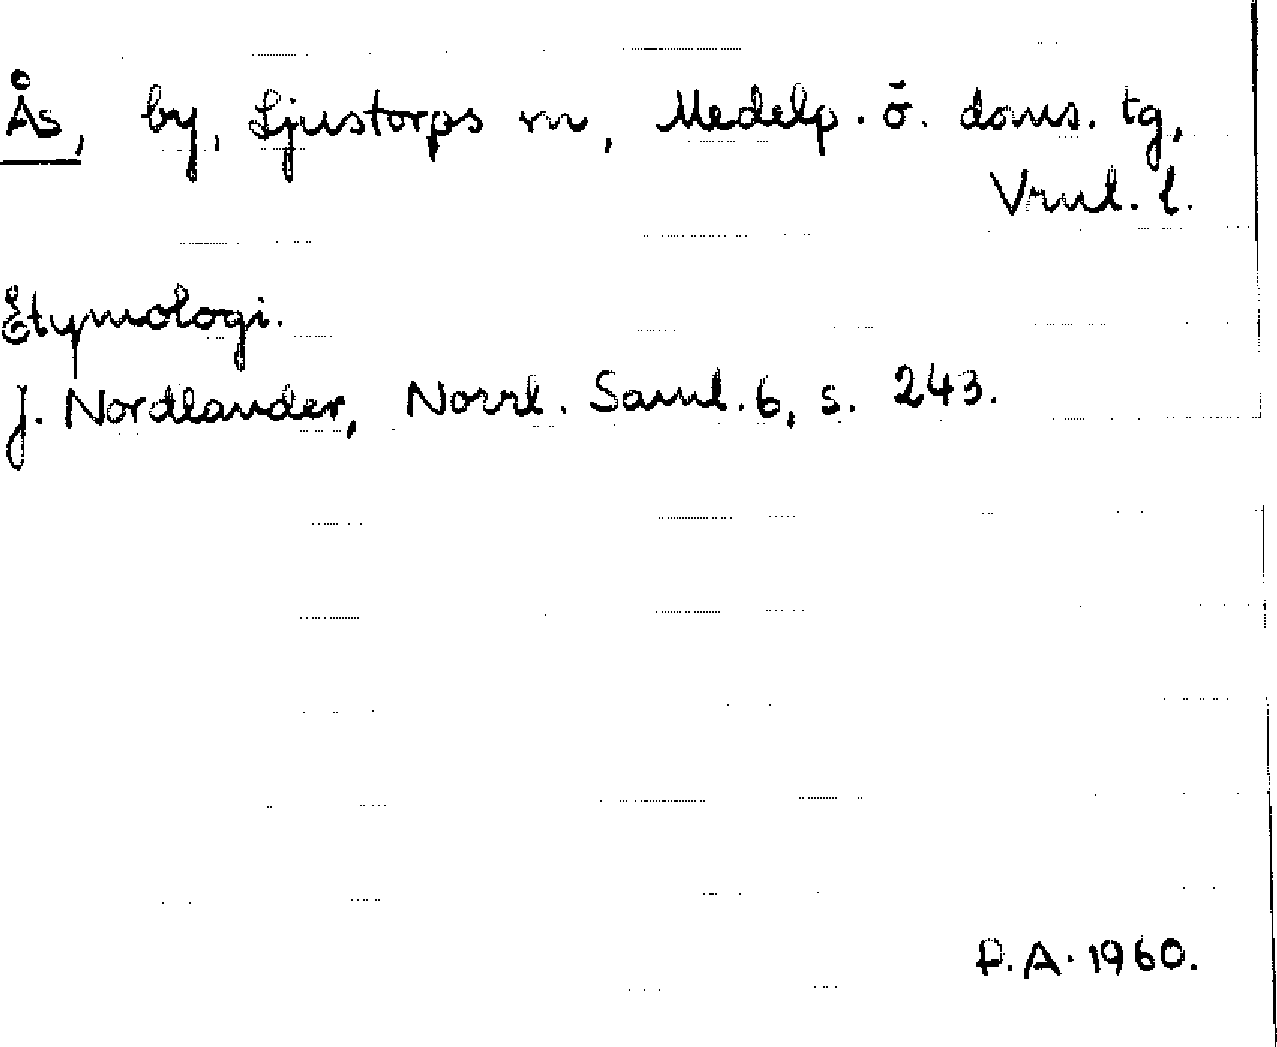 Ås, by, Ljustorps sn, Medelp. ö. doms. tg,
Vrnl. l.
Etymologi.
J. Nordlander, Norrl. Saml. 6, s. 243.
P.A. 1960.